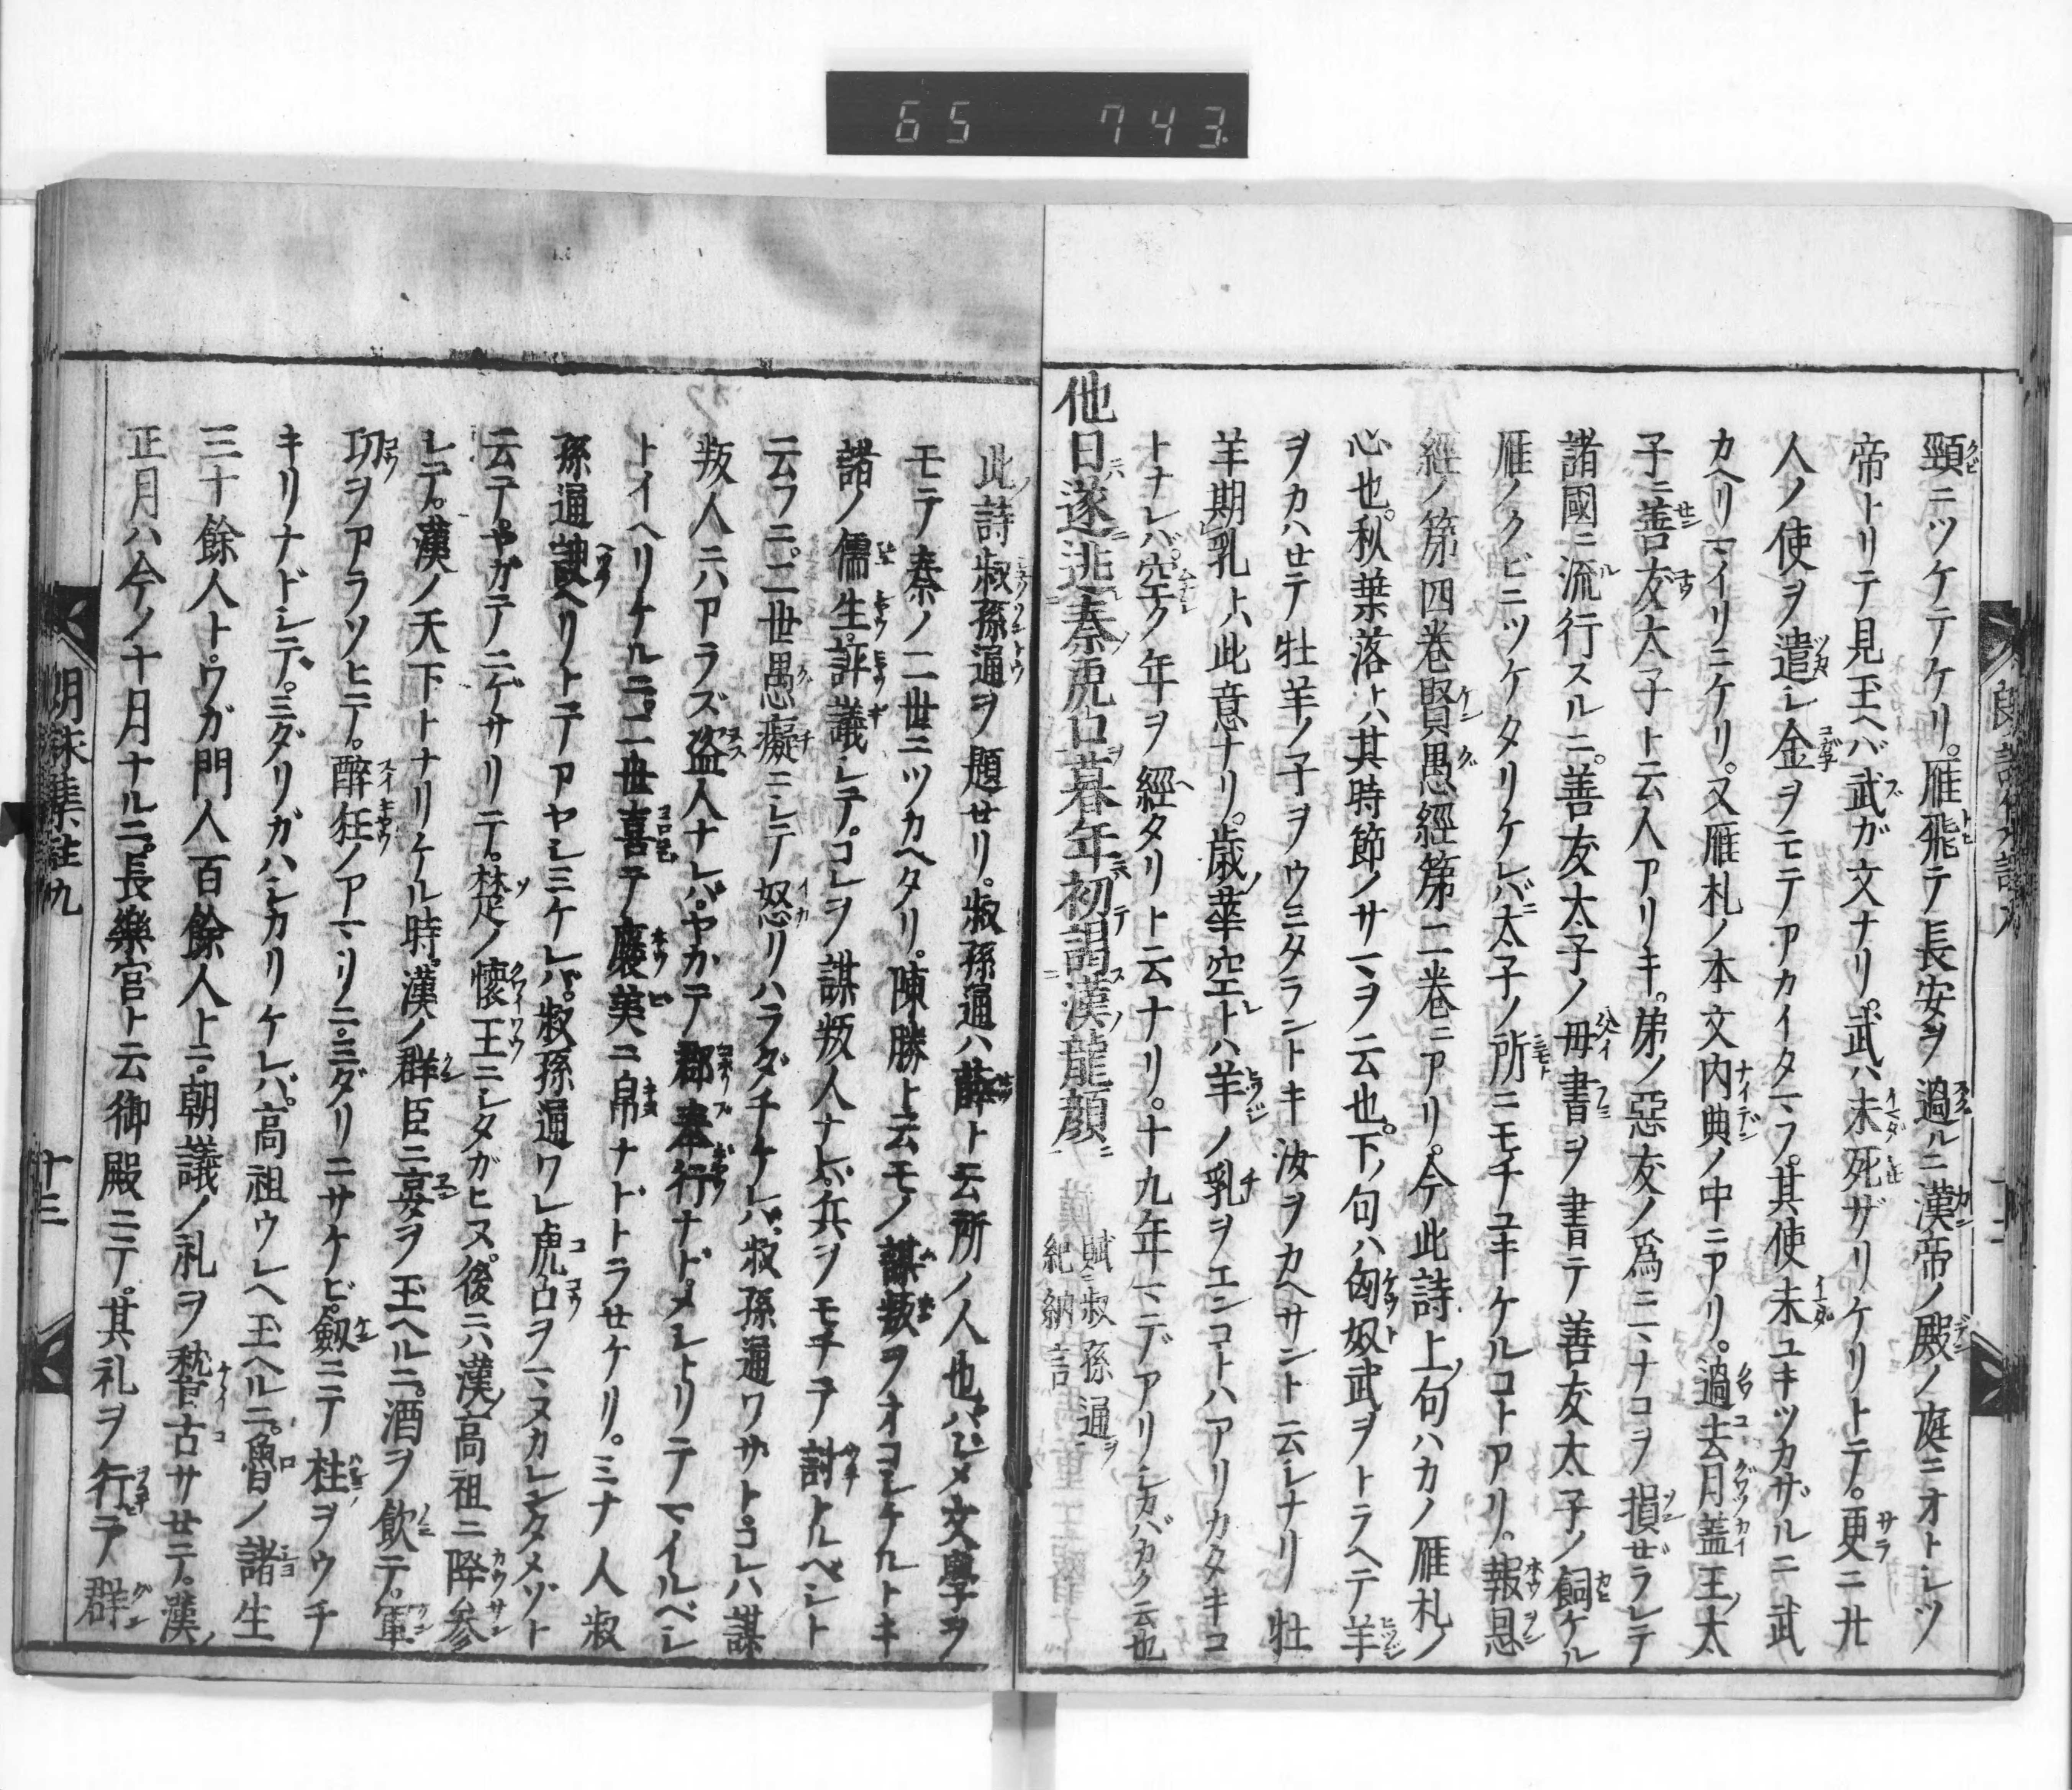 65 743.
頸ニツケテケリ。雁飛テ長安ヲ過ルニ漢帝ノ殿ノ庭ニオトレツ
帝トリテ見玉ヘバ武ガ文ナリ。武ハ未死ザリケリトテ。更ニ廾
人ノ使ヲ遣レ金ヲモテアカイタマフ。其使未ユキツカザルニ武
カヘリマイリニケリ。又雁札ノ本文内典ノ中ニアリ。過去月盖王ノ太
子ニ善友大子ト云人アリキ。弟ノ惡友ノ爲ニマナコヲ損ゼラレテ
諸國ニ流行スルニ。善友太子ノ母書ヲ書テ善友太子ノ飼ケル
雁ノクビニツケタリケレバ太子ノ所ニモチユキケルコトアリ。報恩
經ノ第四巻賢愚經第二巻ニアリ。今此詩ノ上句ハカノ雁札ノ
心也。秋葉落トハ其時節ノサマヲ云也。下ノ句ハ匈奴武ヲトラヘテ羊
ヲカハせテ牡羊ノ子ヲウミタラントキ汝ヲカヘサント云レナリ牡
羊期乳トハ此意ナリ。歳華空トハ羊ノ乳ヲエンコトハアリカタキコ
トナレバ。空ク年ヲ經タリト云ナリ。十九年マデアリシカバカク云也
他日遂逃秦虎口暮年初謁漢龍顔
漢紀納言
賦叔孫通ヲ
此詩叔孫通ヲ題せリ。叔孫通ハ薛ト云所ノ人也ハジメ文學ヲ
モテ秦ノ二世ニツカヘタリ。陳勝ト云モノ謀叛ヲオコシケルトキ
諸ノ儒生評議レテ。コレヲ謀叛人ナレバ兵ヲモチテ討トルベシト
云フニ。二世愚癡ニレテ怒リハラダチケレバ叔孫通ワザトコレハ謀
叛人ニハアラズ盗人ナレバ。ヤカテ郡奉行ナドメレトリテマイルベレ
トイヘリケルニ。二世喜テ襃美ニ帛ナドトラせケリ。ミナ人叔
孫通諛ヘリトテアヤシミケレバ。叔孫通ワレ虎口ヲマヌカレンタメゾト
云テヤガテノニゲサリニテ。楚ノ懷王ニシタガヒヌ。後ニハ漢ノ高祖ニ降参
レテ。漢ノ天下トナリケル時。漢ノ群臣ニ宴ヲ玉ヘルニ。酒ヲ飲テ。軍
功ヲアラソヒテ。醉狂ノアマリニ。ミダリニサケビ。劔ニテ柱ヲウチ
キリナドレテ。ミダリガハシカリケレバ。高祖ウレヘ玉ヘルニ。魯ノ諸生
三十餘人トワガ門人百餘人トニ。朝議ノ礼ヲ稽古サせテ。漢ノ
正月ハ今ノ十月ナルニ。長樂宮ト云御殿ニテ。其礼ヲ行テ群
朗詠集註九
十三